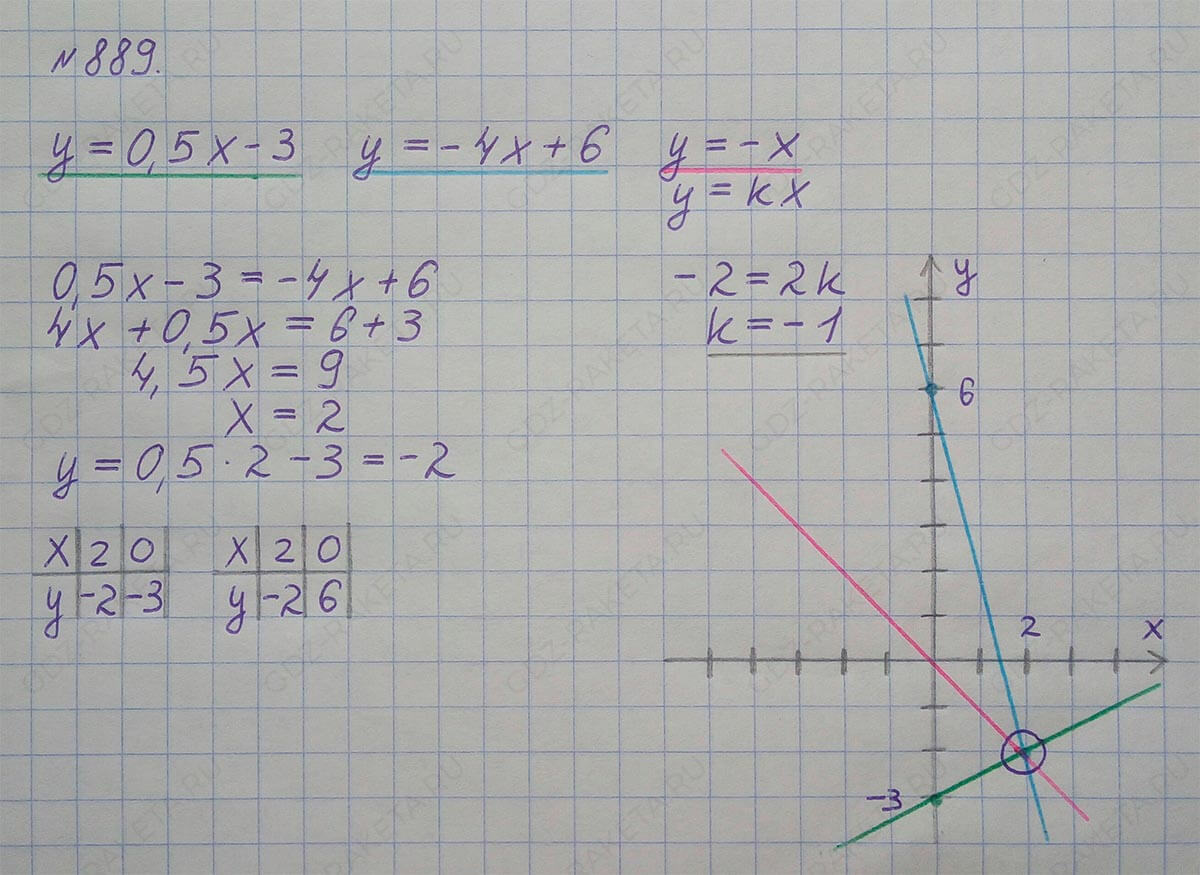 № 889.
y = 0,5x - 3   y = -4x + 6   y = -x
y = kx
0,5x - 3 = -4x + 6
4x + 0,5x = 6 + 3
4,5x = 9
x = 2
y = 0,5 · 2 - 3 = -2
-2 = 2k
k = -1
x | 2 | 0
y | -2 | -3
x | 2 | 0
y | -2 | 6
y
6
2
x
-3
GDZ-RAKETA.RU